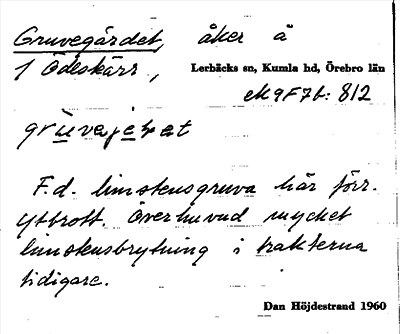 Gruvegärdet, åker å
1 Ödeskärr,
Lerbäcks sn, Kumla hd, Örebro län
ek 9F7b: 812
F.d. limstensgruva här förr.
Ytbrott. Överhuvud mycket
limstensbrytning i trakterna
tidigare.
Dan Höjdestrand 1960